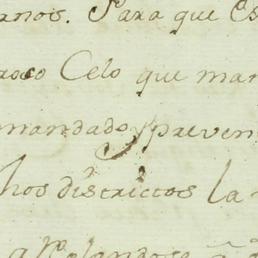 anos. Para que Es
roso Celo que man
mandado y preven
hos districtos la